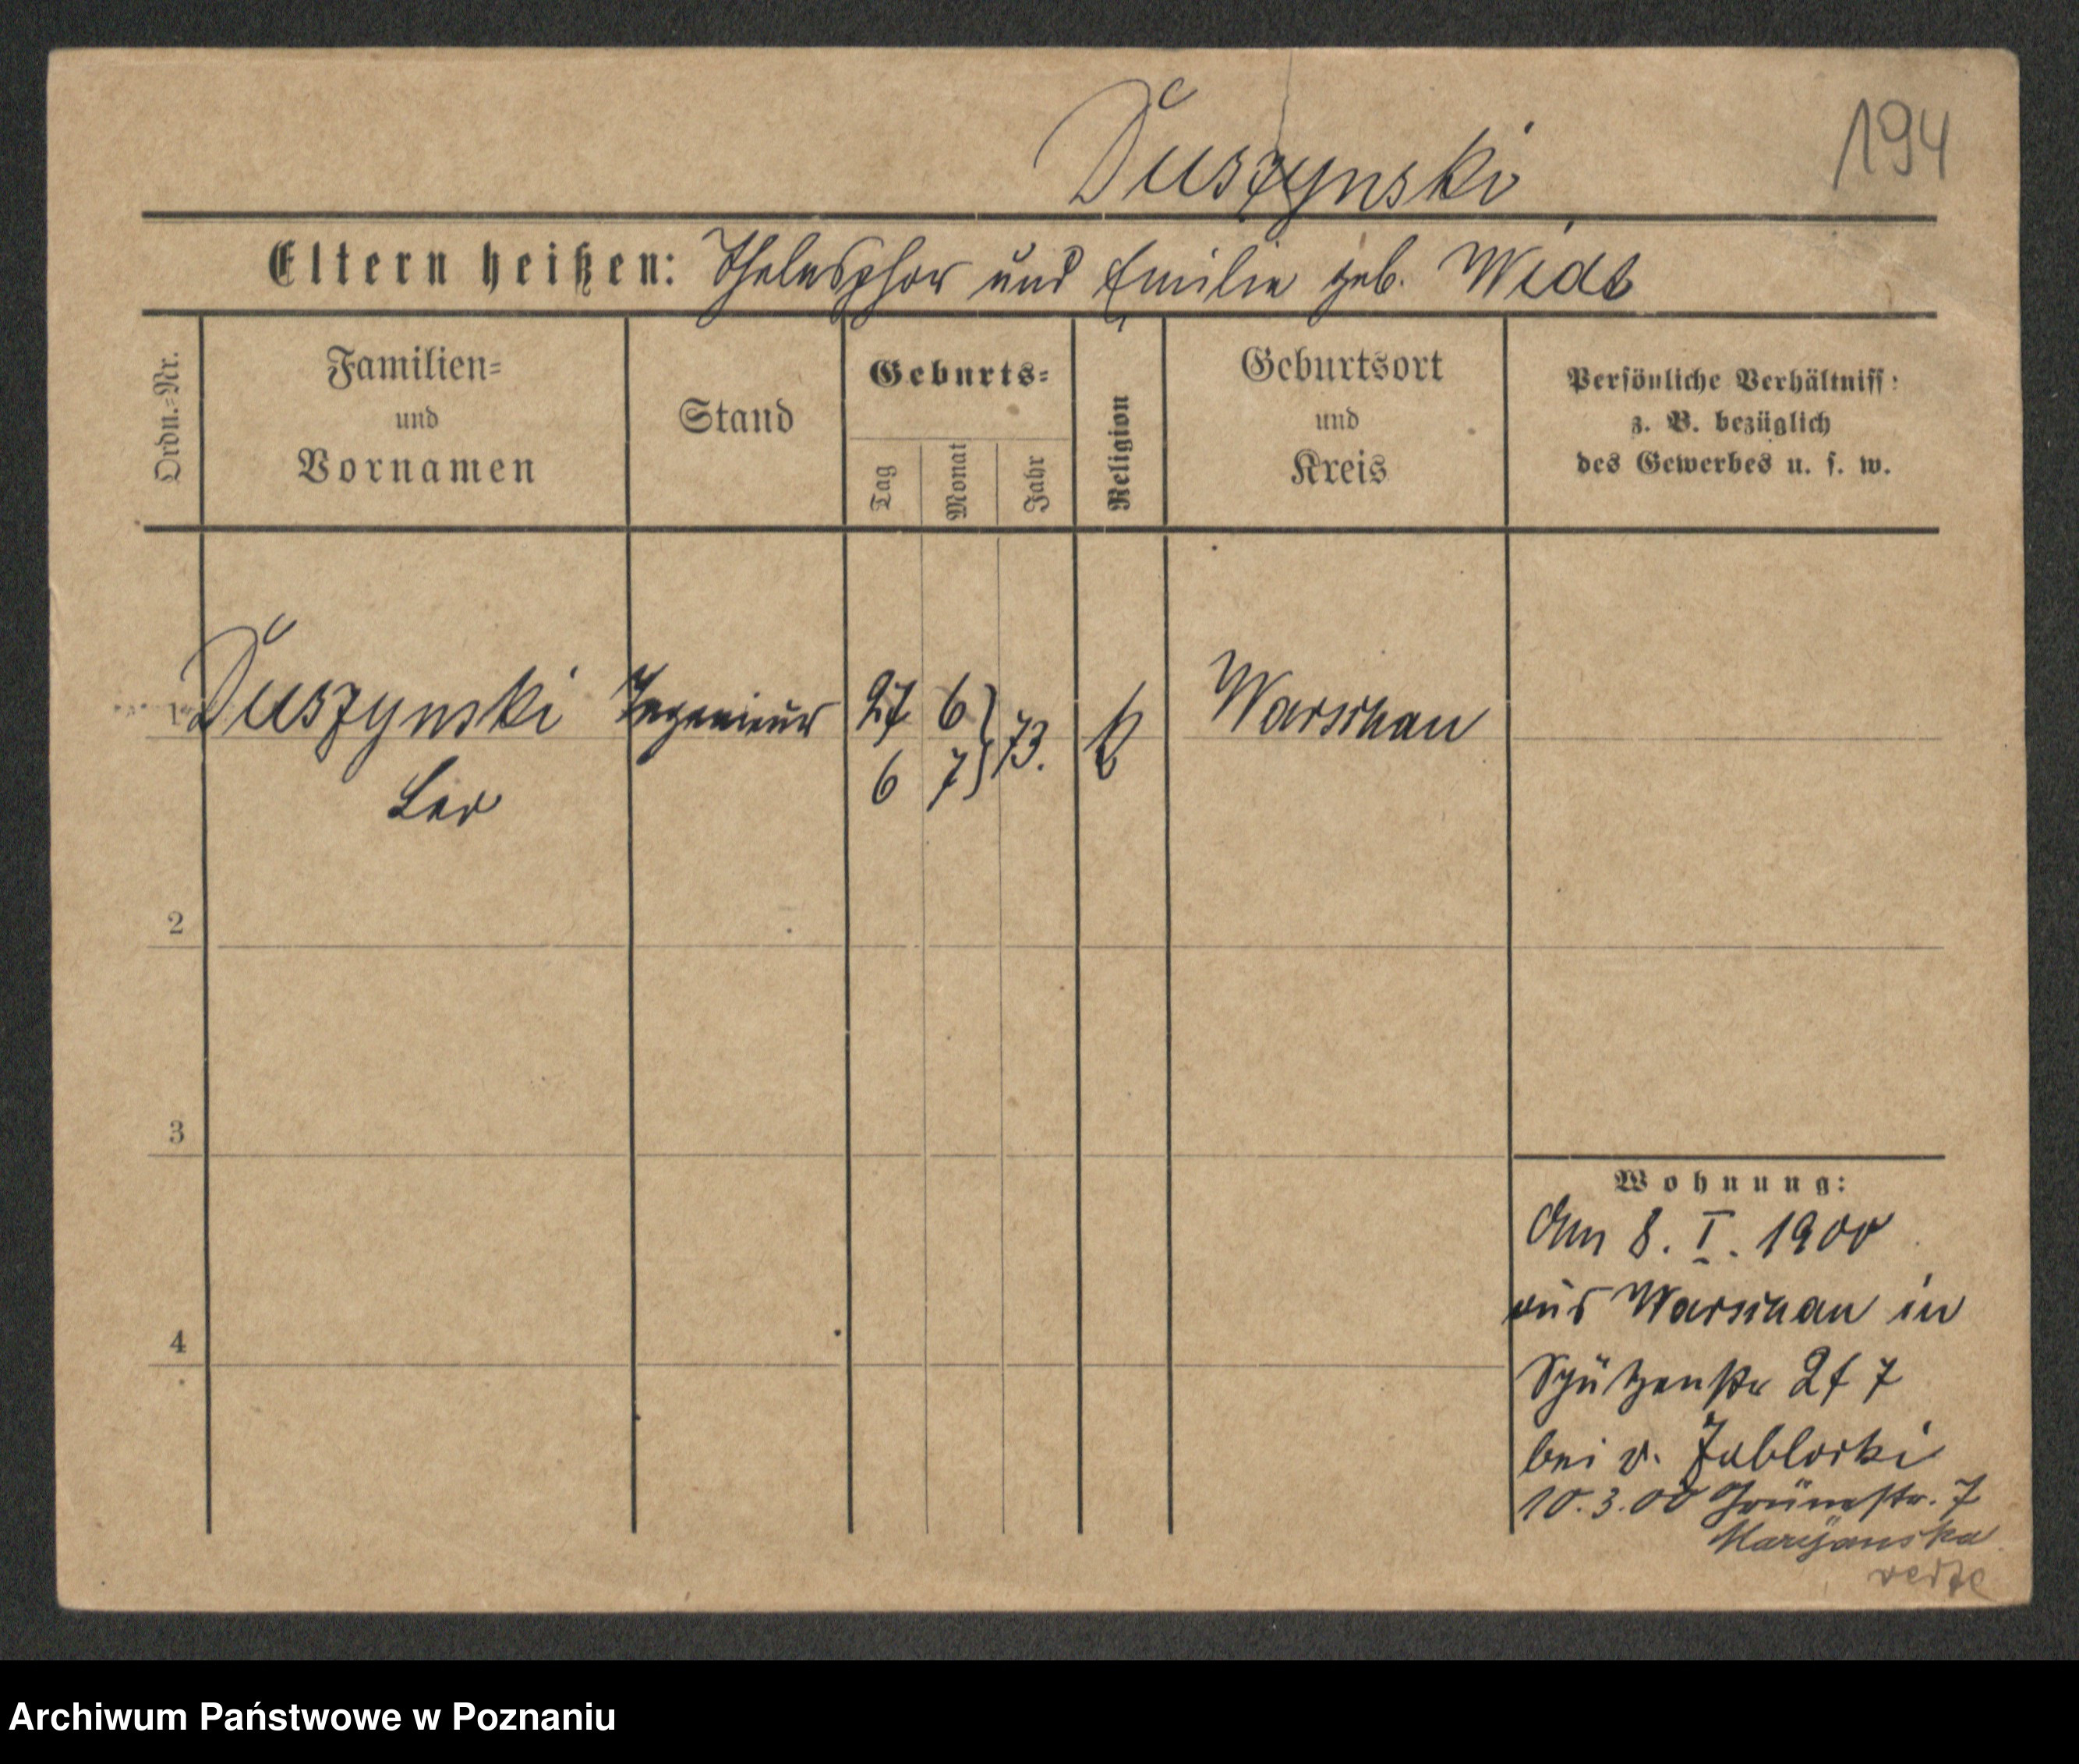 194
Duszynski
Eltern heißen: Thelesphor und Emilie geb. Widt
Ordn.=Nr.
Familien=
und
Vornamen
Stand
Geburts=
Tag
Monat
Jahr
Religion
Geburtsort
und
Kreis
Persönliche Verhältniss:
z. B. bezüglich
des Gewerbes u. s. w.
1 Duszynski Ingenieur 27 6 } 73. k Warschau
Leo 6 7
2
3
4
Wohnung:
Am 8. I. 1900
aus Warschau in
Schützenstr 27
bei v.
10.3.00 Grünestr. 7
Maryanska
Archiwum Państwowe w Poznaniu